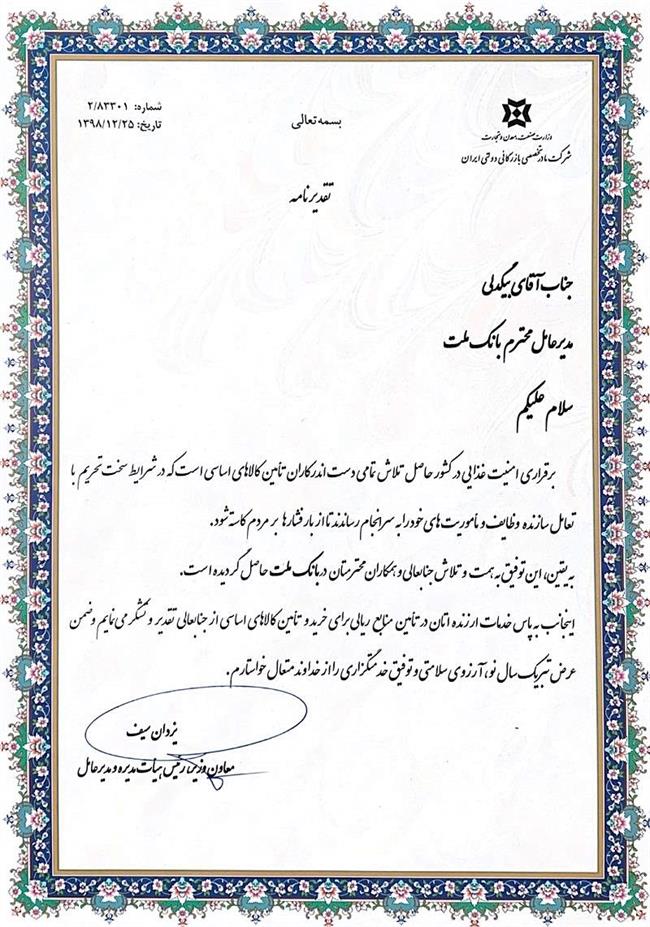 وزارت صنعت، معدن و تجارت
شرکت مادر تخصصی بازرگانی دولتی ایران
بسمه تعالی
شماره: ۲/۸۳۳۰۱
تاریخ: ۱۳۹۸/۱۲/۲۵
تقدیرنامه
جناب آقای بیگدلی
مدیرعامل محترم بانک ملت
سلام علیکم
برقراری امنیت غذایی در کشور حاصل تلاش تمامی دست اندرکاران تأمین کالاهای اساسی است که در شرایط سخت تحریم با
تعامل سازنده وظایف و مأموریت های خود را به سرانجام رساندند تا از بار فشارها بر مردم کاسته شود.
به یقین، این توفیق به همت و تلاش جنابعالی و همکاران محترمتان در بانک ملت حاصل گردیده است.
اینجانب به پاس خدمات ارزنده اتان در تأمین منابع ریالی برای خرید و تأمین کالاهای اساسی از جنابعالی تقدیر و تشکر می نمایم و ضمن
عرض تبریک سال نو، آرزوی سلامتی و توفیق خدمتگزاری را از خداوند متعال خواستارم.
یزدان سیف
معاون وزیر، رئیس هیات مدیره و مدیرعامل